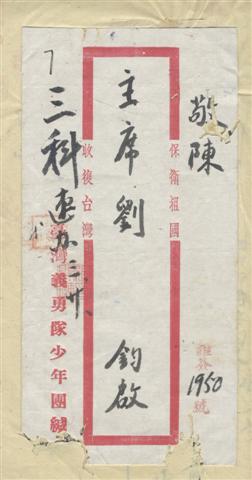 敬陳
保衛祖國
主席劉 鈞啟
收復台灣
7
三科
速办 三、廿、
臺灣義勇隊少年團緘
1950
號